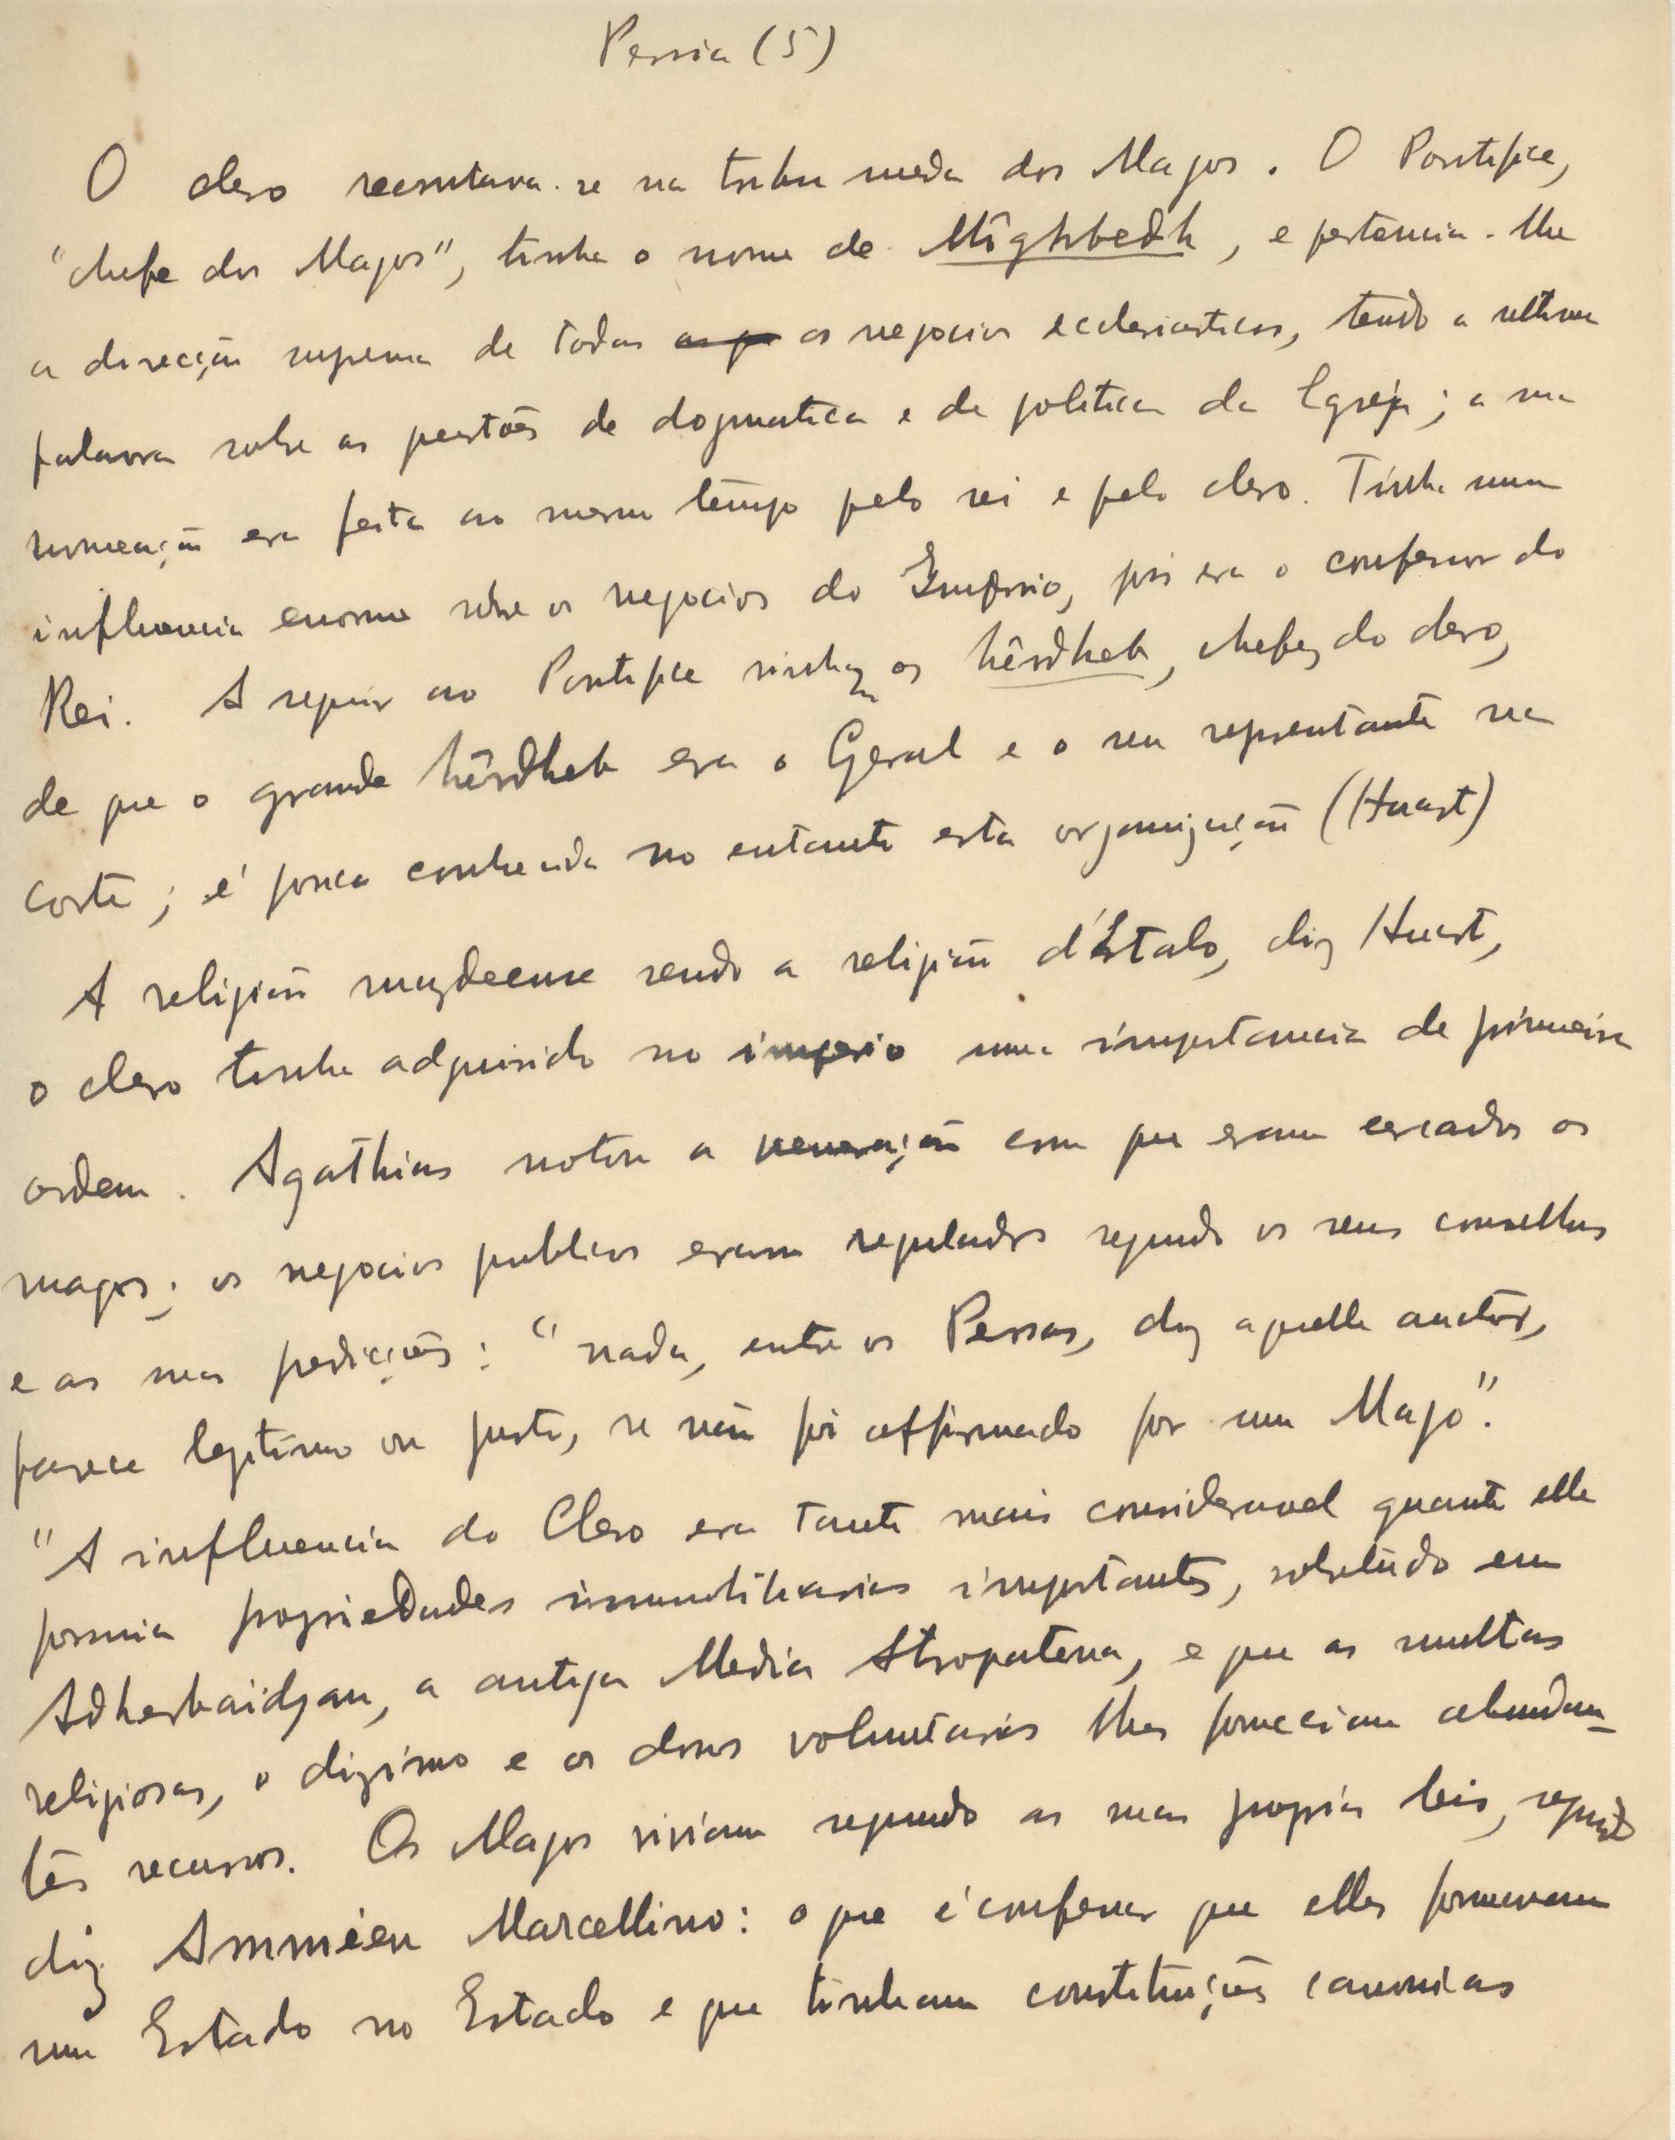 Persia (5)
O clero recrutava-se na tribu meda dos Magos. O Pontifice,
"chefe dos Magos", tinha o nome de Mîghbedh, e pertencia-lhe
a direcção suprema de todos os negocios ecclesiasticos, tendo a ultima
palavra sobre as questões de dogmatica e de politica da Egreja; a sua
nomeação era feita ao mesmo tempo pelo rei e pelo clero. Tinha uma
influencia enorme sobre os negocios do Imperio, pois era o confessor do
Rei. A seguir ao Pontifice vinham os hêrdheb, chefes do clero,
de que o grande hêrdheb era o Geral e o seu representante na
corte; é pouco conhecida no entanto esta organização (Huart)
A religião mazdeense sendo a religião d'Estado, diz Huart,
o clero tinha adquirido no imperio uma importancia de primeira
ordem. Agathias notou a veneração com que eram cercados os
magos; os negocios publicos eram regulados segundo os seus conselhos
e as suas predicções: "nada, entre os Persas, diz aquelle auctor,
parece legitimo ou justo, se não foi affirmado por um Mago".
"A influencia do Clero era tanto mais consideravel quanto elle
possuia propriedades immobiliarias importantes, sobretudo em
Adherbaidjan, a antiga Media Atropatena, e que as multas
religiosas, o dizimo e os dons voluntarios lhes forneciam abundan-
tes recursos. Os Magos viviam segundo as suas proprias leis, segundo
diz Ammien Marcellino: o que é confessar que elles formavam
um Estado no Estado e que tinham constituições canonicas